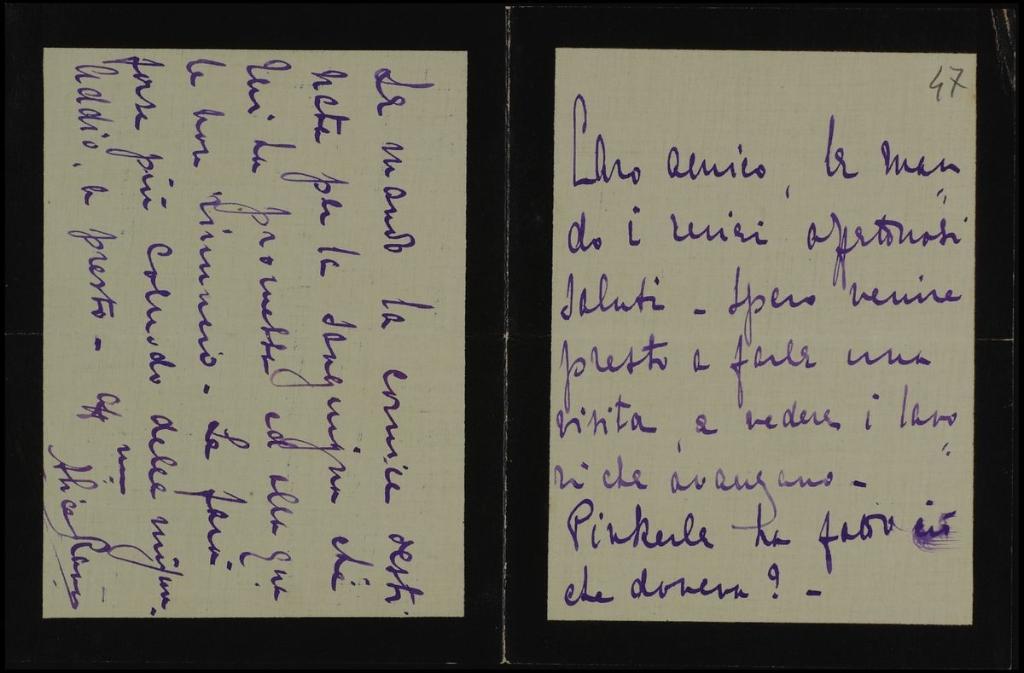 47
Caro amico, le man
do i miei affettuosi
saluti - Spero venire
presto a farle una
visita, e vedere i lavo
ri che avanzano -
Pinkerle ha fatto ciò
che doveva? -
Le mando la cornice desti
nata per la sanguigna che
mi ha promessa ed alla qua
le non rinuncio - La farà
forse più comodo della
Addio, a presto - aff mia
Alice